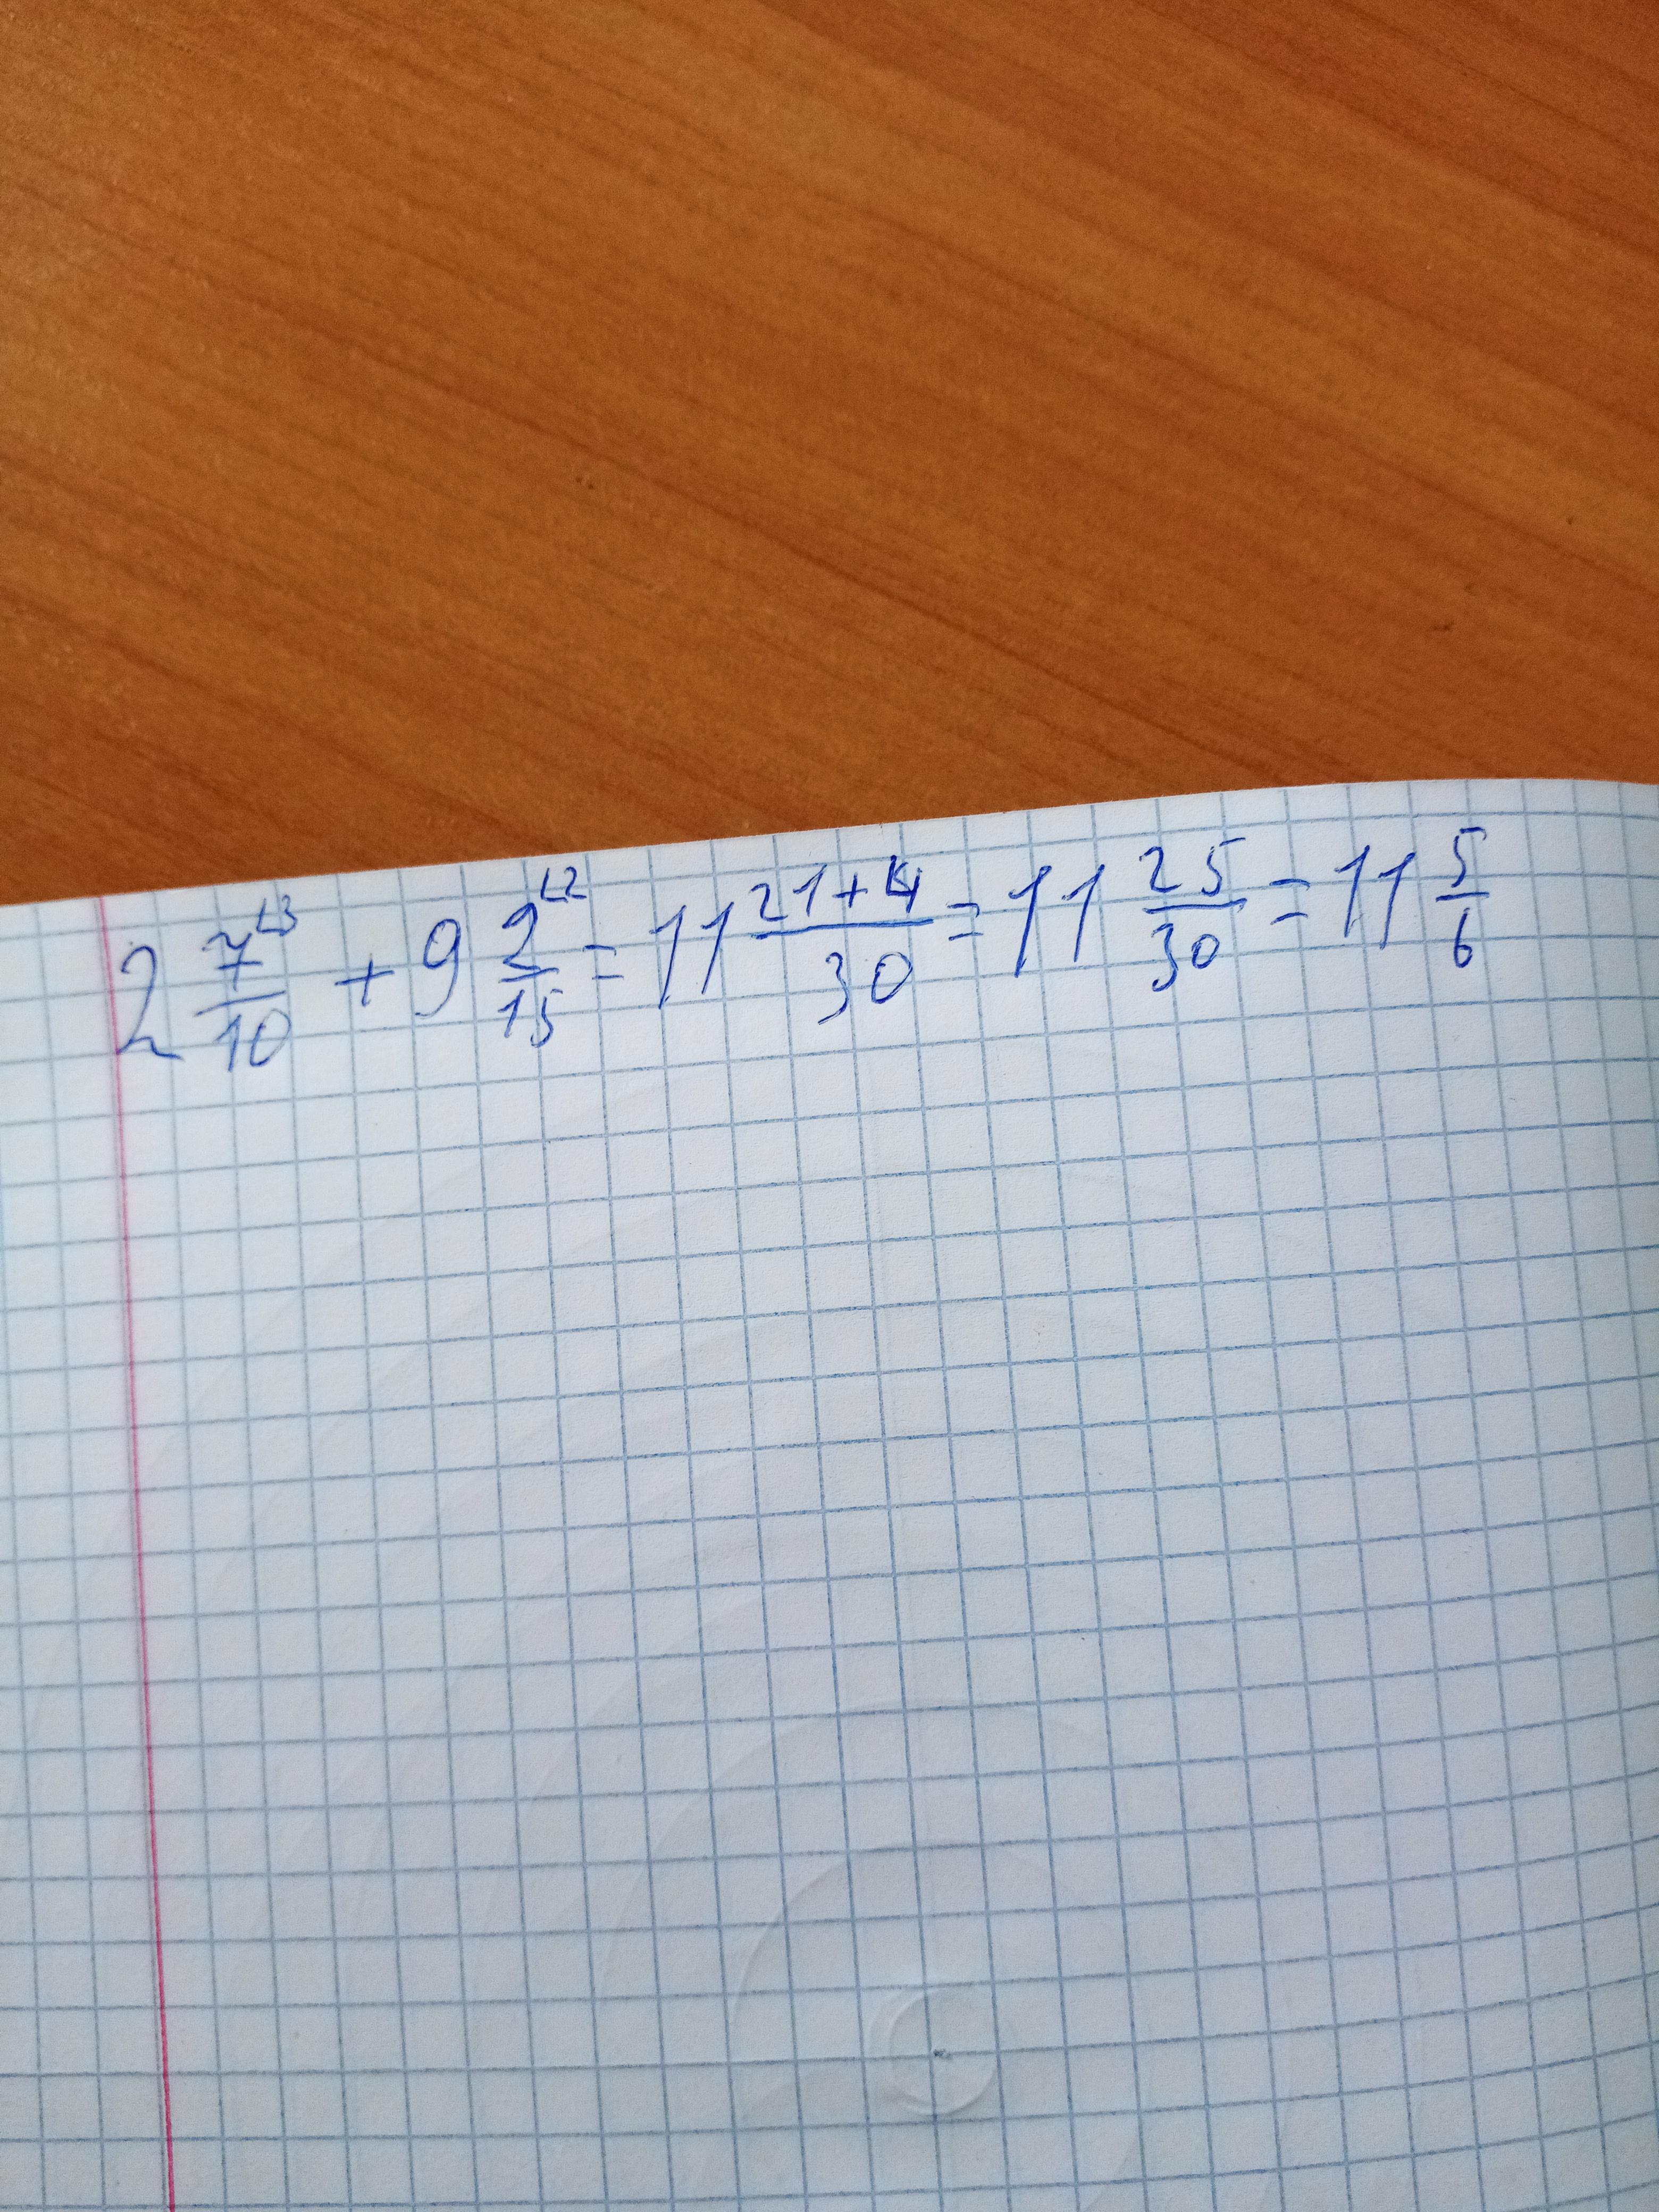 2 7/10 ⌊3 + 9 2/15 ⌊2 = 11 21+4/30 = 11 25/30 = 11 5/6